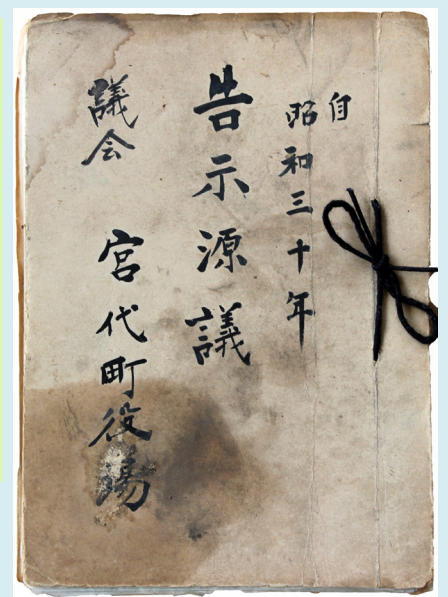 自
昭和三十年
告示源議
議会
宮代町役場